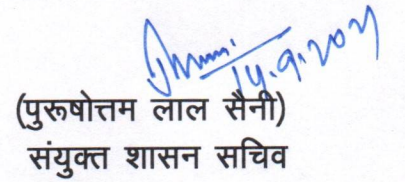 14.9.2021
(पुरूषोत्तम लाल सैनी)
संयुक्त शासन सचिव